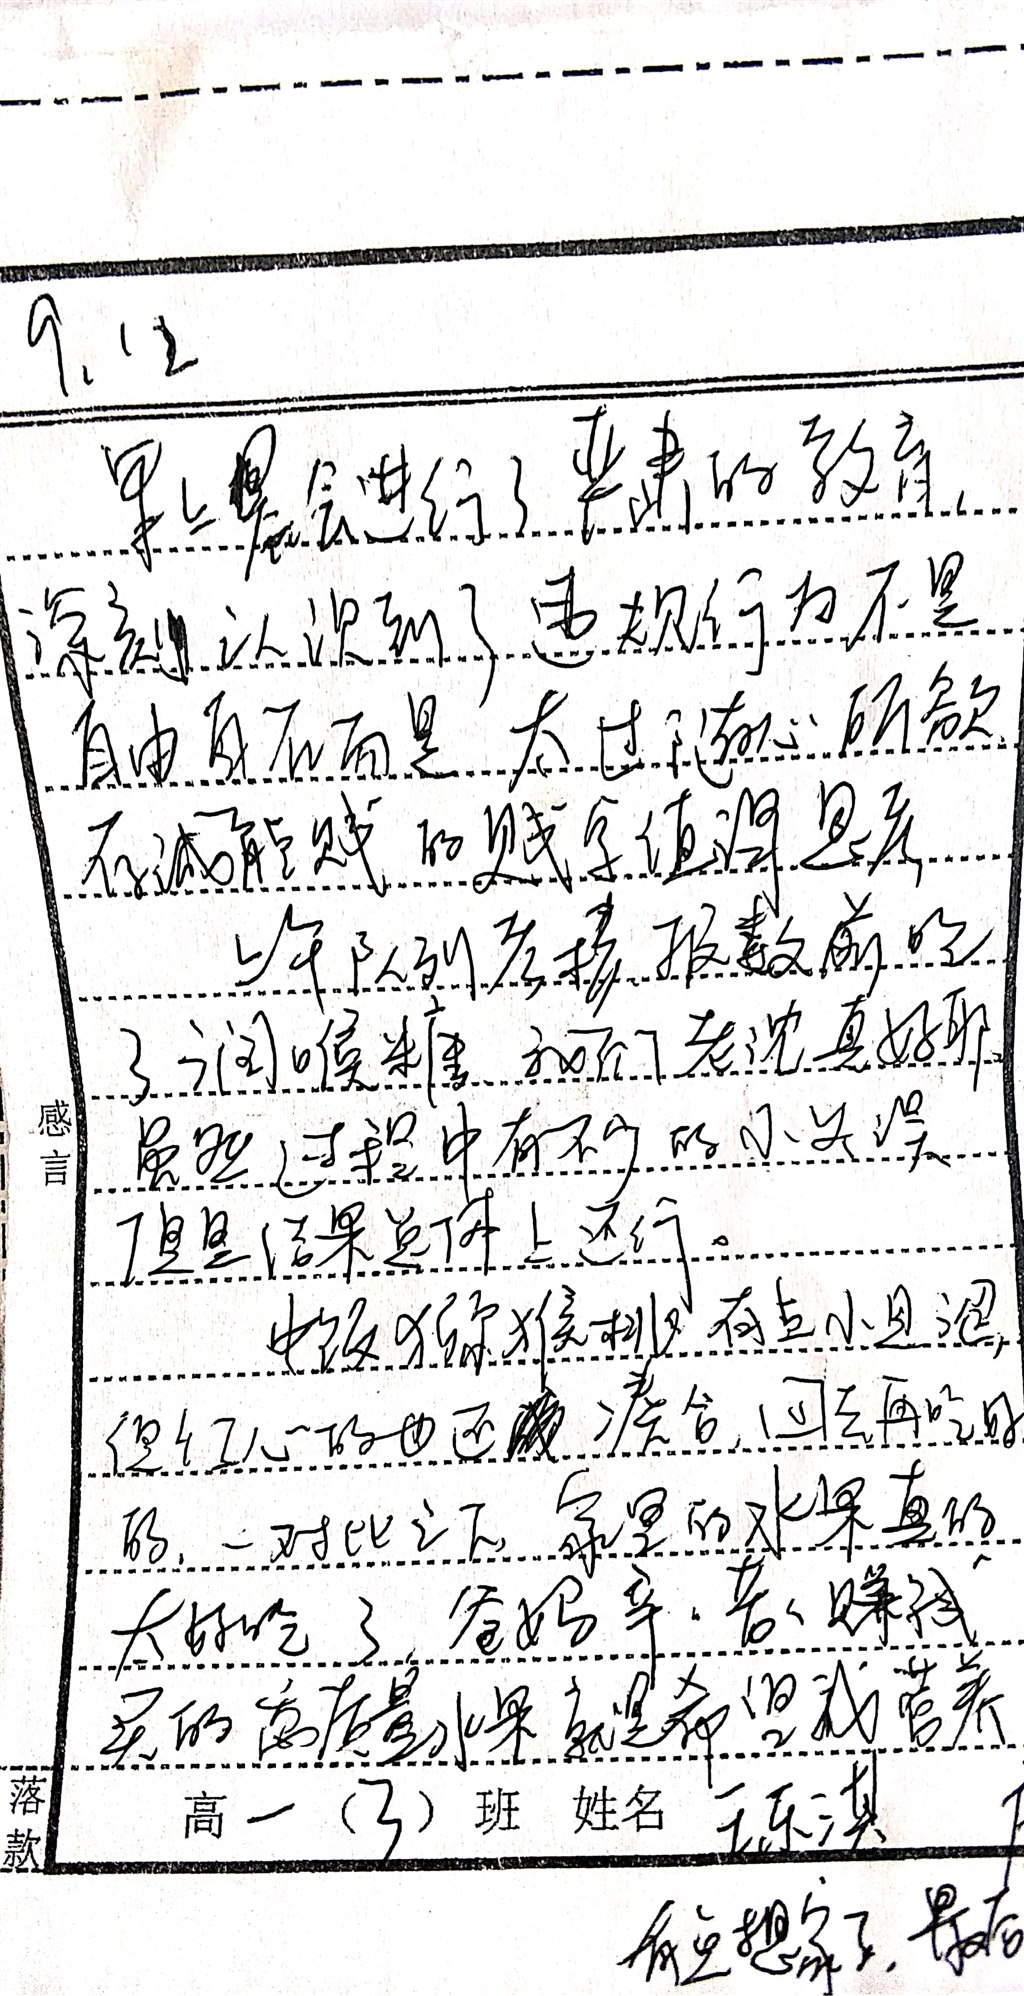 9.12
早上晨会进行了严肃的教育,
深刻认识到了违规行为不是
自由自在而是太过随心所欲
不诚能贱的贱字值得思考
上午队列考核,报数前吃
了润喉糖,我们老沈真好耶。
虽然过程中有不少的小失误
但是结果总体上还行。
中饭猕猴桃有点小且涩,
但红心的也还凑合,回去再吃
的,一对比之下,家里的水果真的
太好吃了,爸妈辛辛苦苦赚钱
买的高质量水果就是希望我营养
感言
落款
高一(3)班 姓名
有点想家了,最后